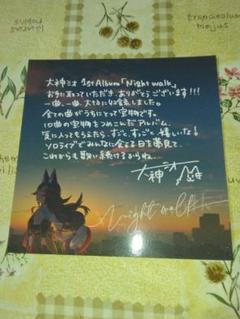 大神ミオ 1st Album「Night walk」
お手に取っていただき、ありがとうございます!!!
一曲、一曲、大切に収録しました。
全ての曲がうちにとって宝物です。
10曲の宝物をつめこんだアルバム。
気に入ってもらえたら、すごく、すっごく嬉しいな!
ソロライブでみんなに会える日を夢見て、
これからも歌い続けるからね。
大神ミオ
Night walk